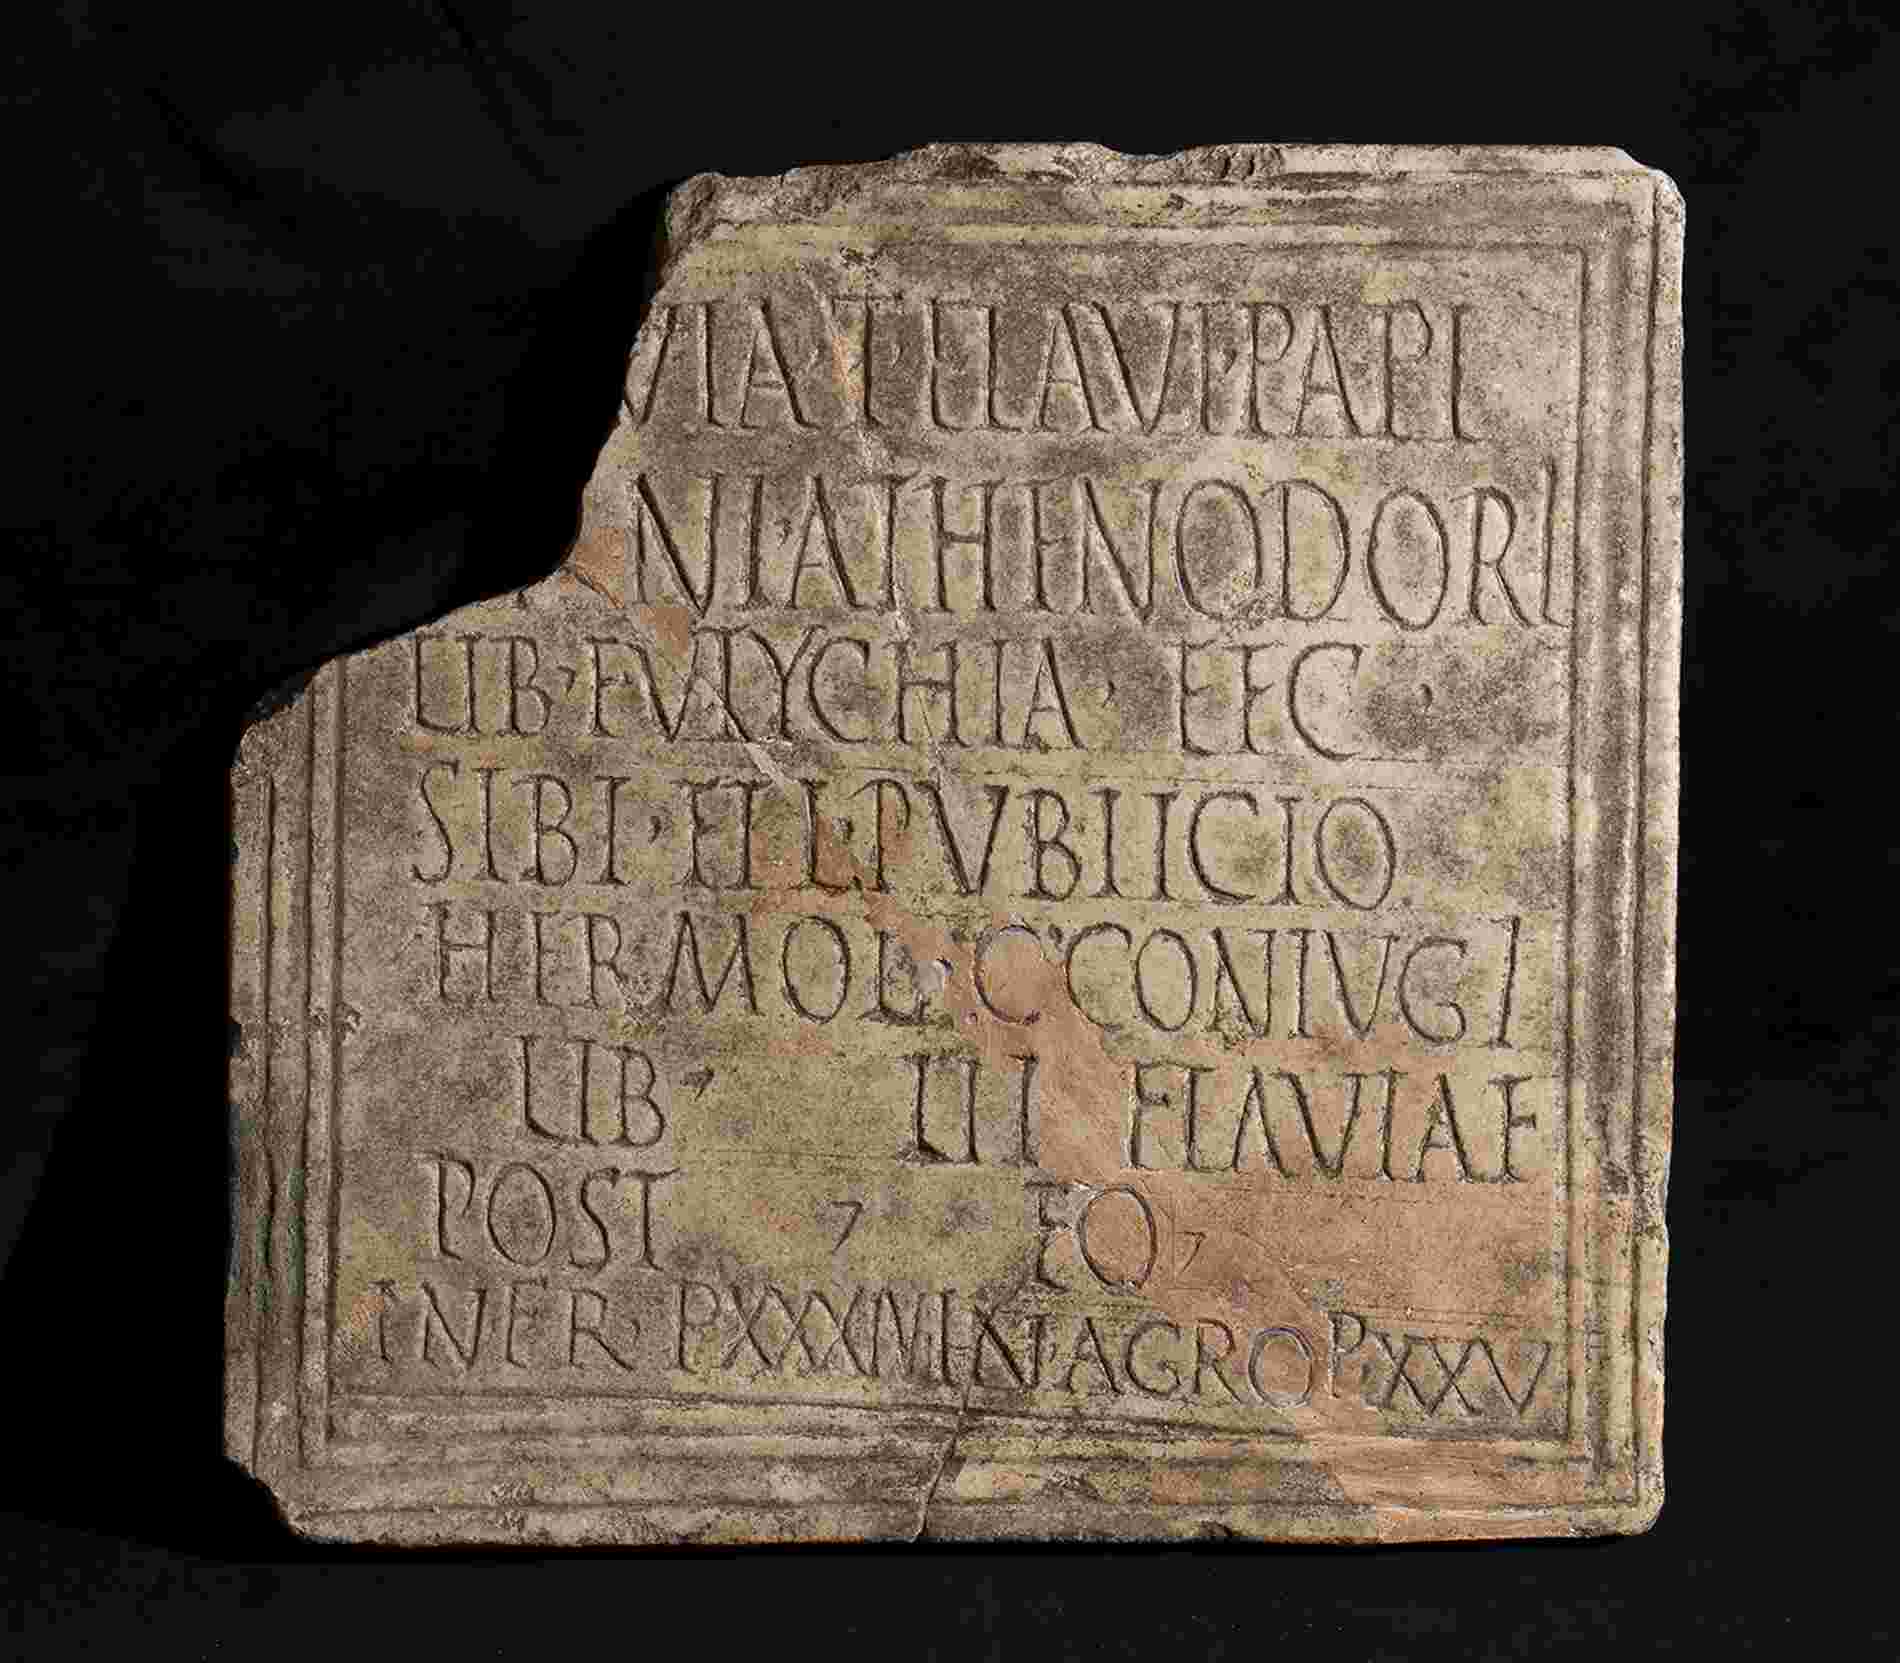 VIA·T·FLAVI·PAPI
NI·ATHENODORI
LIB·EVTYCHIA· FEC ·
SIBI·ET·L·PVBLICIO
HERMOL·C·CONIVGI
LIB· ETI FLAVIAE
POST · EO·
IN·FR·PXXXVIIN·AGROP·XXV